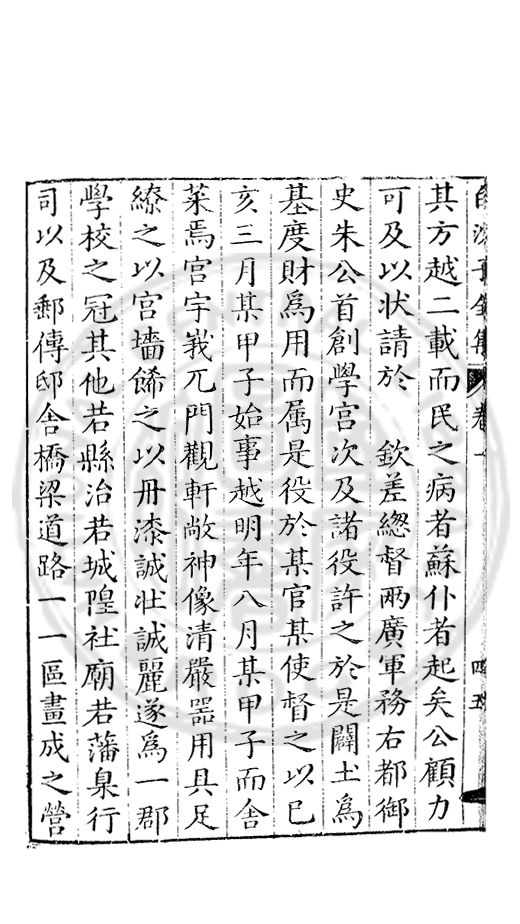 白沙子全集 卷一 四五
其方越二載而民之病者蘇仆者起矣公顧力
可及以状請於 欽差總督兩廣軍務右都御
史朱公首創學宮次及諸役許之於是闢土爲
基度財爲用而属是役於某官某使督之以巳
亥三月某甲子始事越明年八月某甲子而舍
菜焉宮宇峩兀門觀軒敞神像清嚴器用具足
繚之以宮墻餙之以丹漆誠壮誠麗遂爲一郡
學校之冠其他若縣治若城隍社廟若藩臬行
司以及郵傳邸舍橋梁道路一一區畫成之營